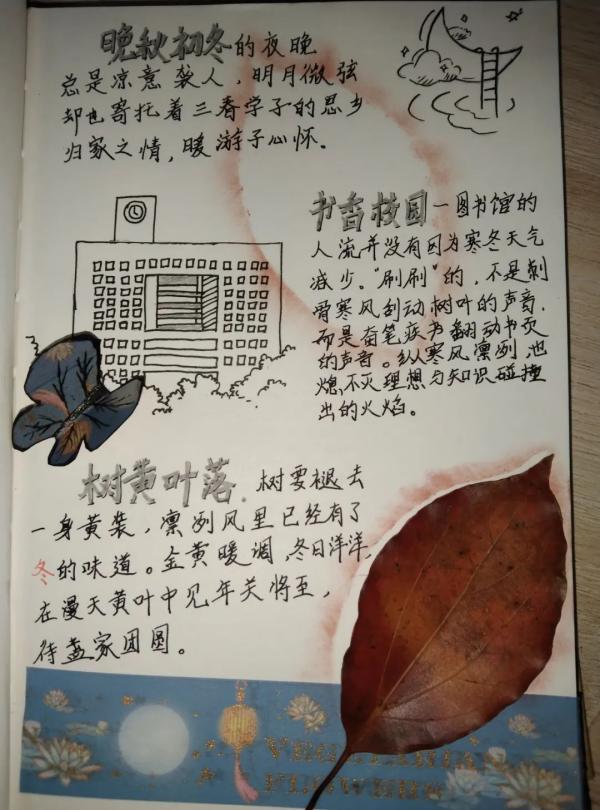 晚秋初冬的夜晚
总是凉意袭人，明月微弦
却也寄托着三春学子的思乡
归家之情，暖游子心怀。
书香校园—图书馆的
人流并没有因为寒冬天气
减少。“刷刷”的，不是刺
骨寒风刮动树叶的声音，
而是奋笔疾书翻动书页
的声音。纵寒风凛冽也
熄不灭理想与知识碰撞
出的火焰。
树黄叶落．树要褪去
一身黄装，凛冽风里已经有了
冬的味道。金黄暖调，冬日洋洋，
在漫天黄叶中见年关将至，
待盏家团圆。